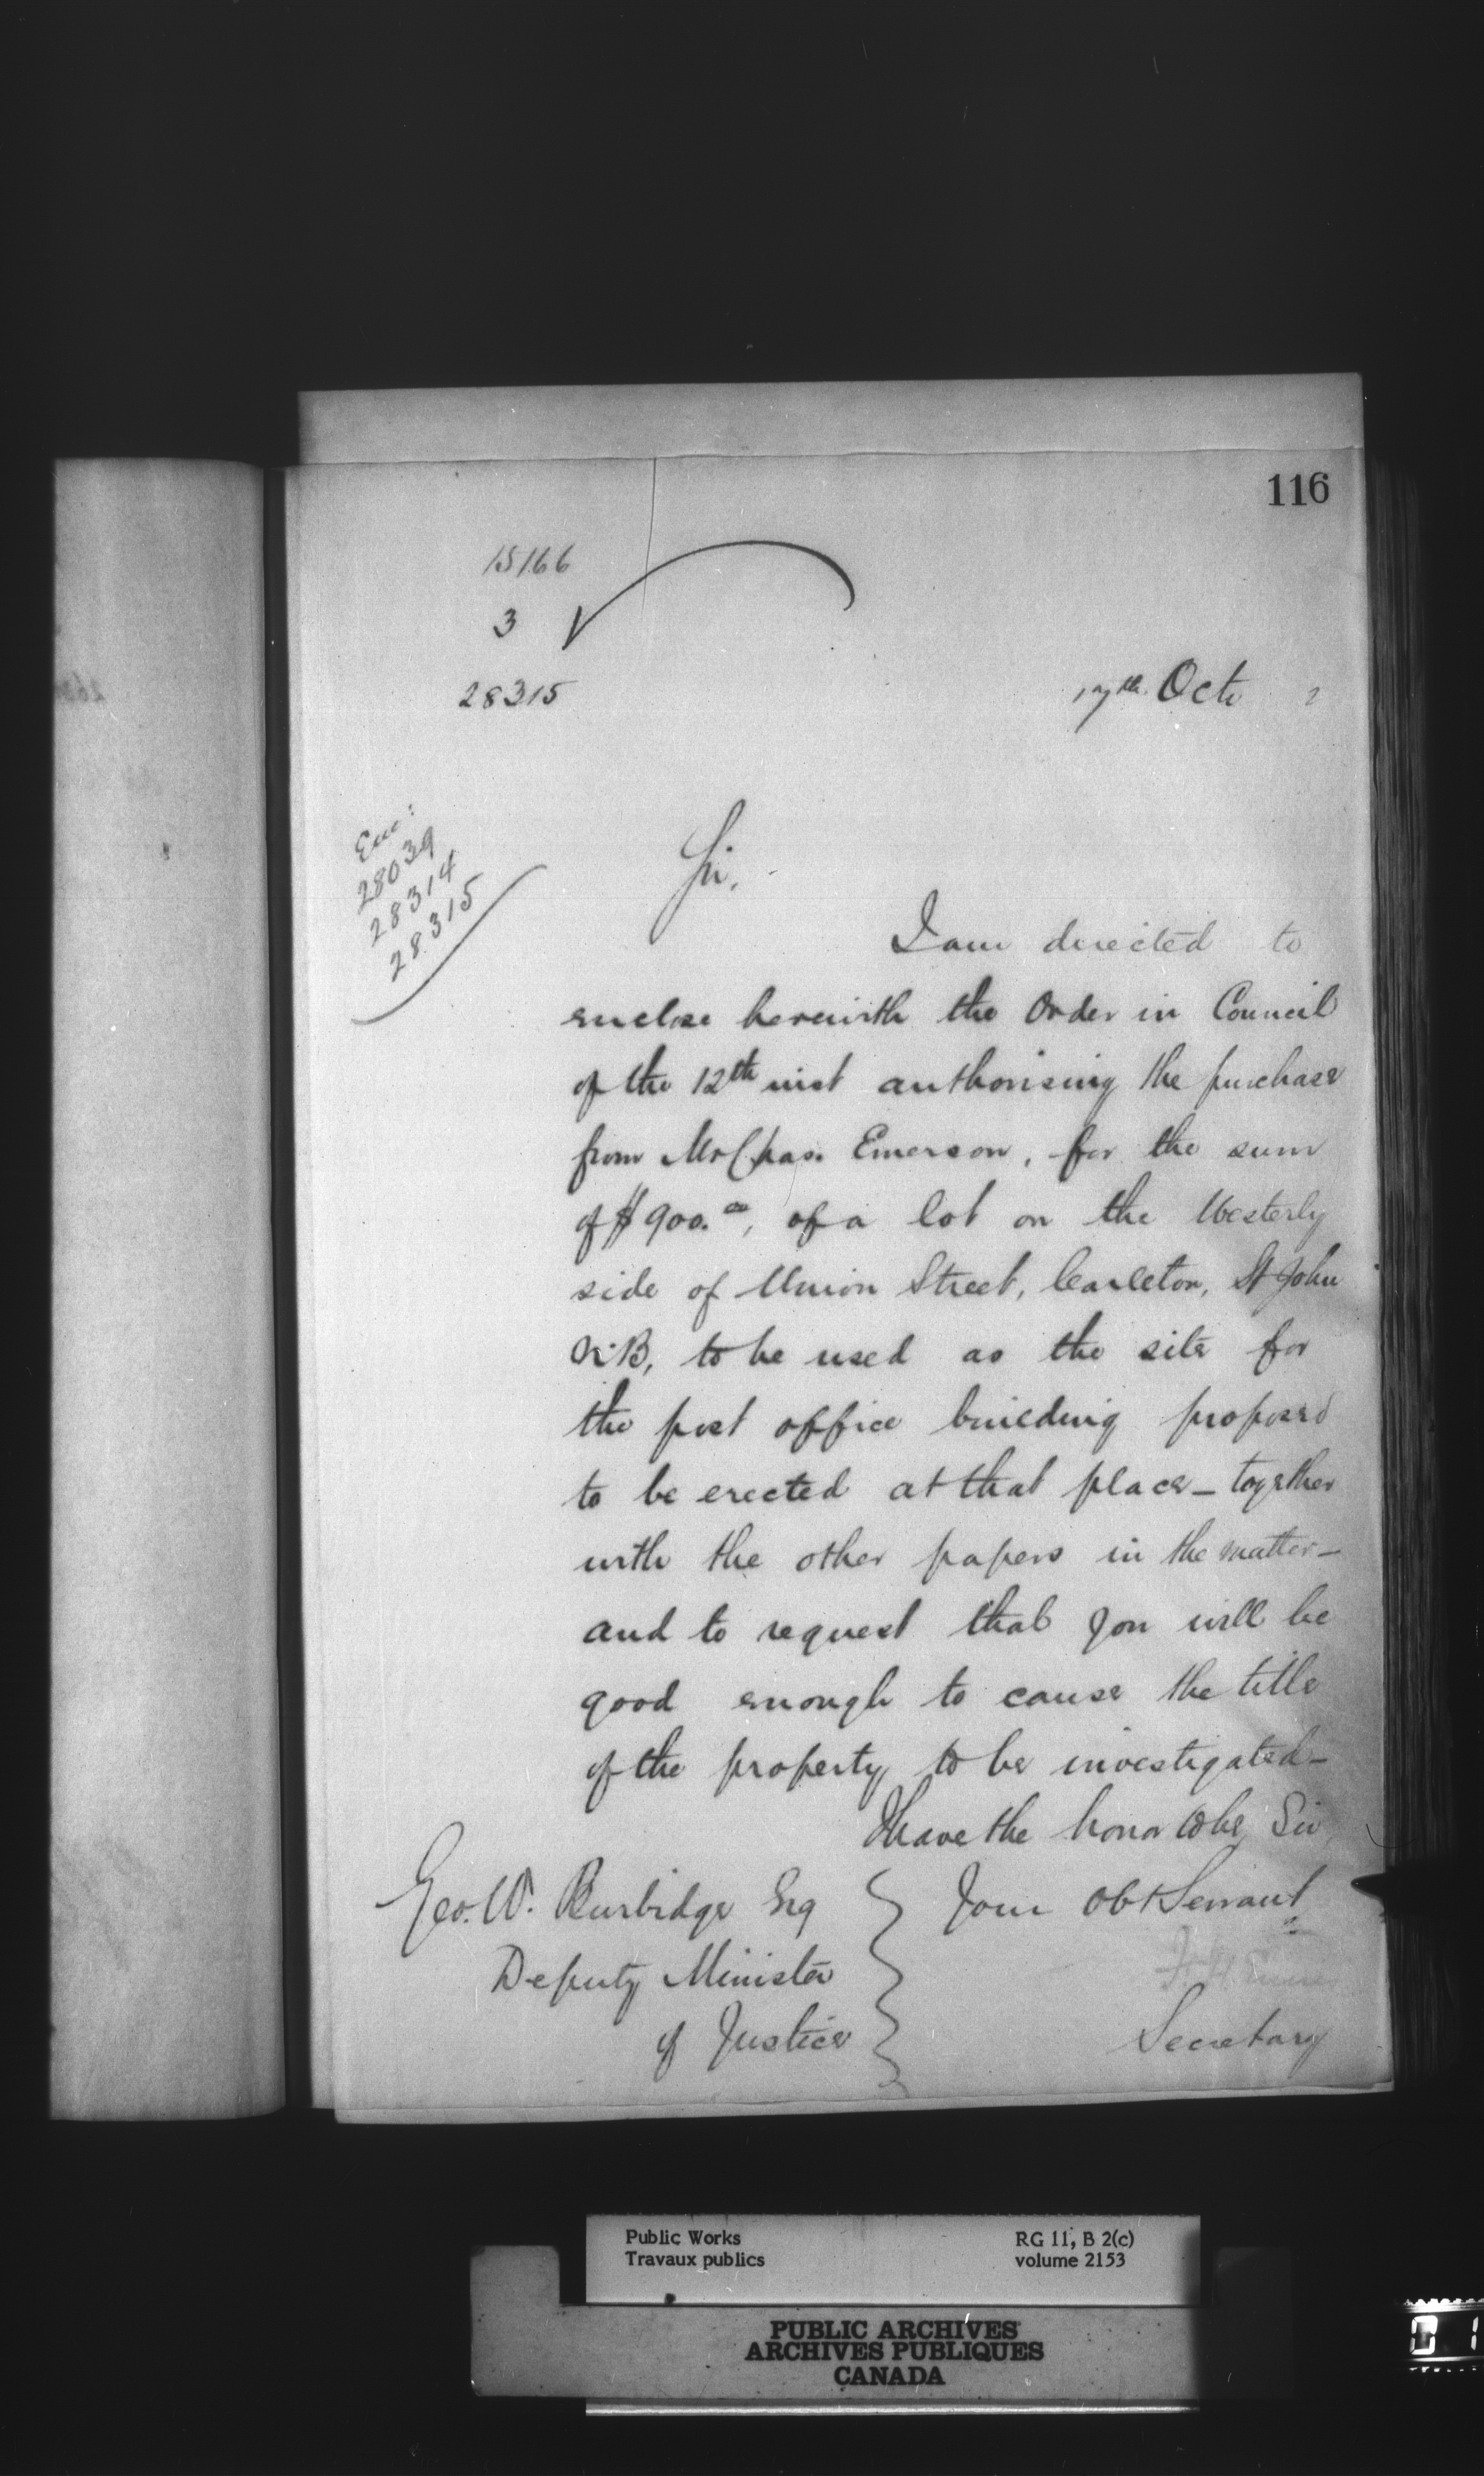 116
15166
3
28315
17th Octr 2
Enc:
28039
28314
28315
Sir,
I am directed to
enclose herewith the Order in Council
of the 12th inst authorising the purchase
from Mr Chas. Emerson, for the sum
of $900.00, of a lot on the Westerly
side of Union Street, Carleton, St John
N.B, to be used as the site for
the post office building proposed
to be erected at that place - together
with the other papers in the matter -
and to request that you will be
good enough to cause the title
of the property to be investigated -
I have the honor to be, Sir
Your Obt Servant
F. H. Ennis
Secretary
Geo. W. Burbidge Esq
Deputy Minister
of Justice
Public Works
Travaux publics
RG 11, B 2(c)
volume 2153
PUBLIC ARCHIVES
ARCHIVES PUBLIQUES
CANADA
01